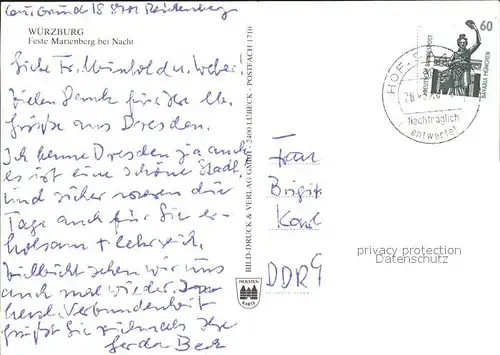 Grund 18 8701 Reichenberg
WÜRZBURG
Feste Marienberg bei Nacht
Liebe Fr. u. Weber
Vielen Dank für die lb.
Grüße aus Dresden.
Ich kenne Dresden ja auch
es ist eine schöne Stadt,
und sicher waren die
Tage auch für Sie er-
holsam + lehrreich.
Vielleicht sehen wir uns
auch mal wieder. In
herzl. Verbundenheit
grüßt Sie vielmals Ihre
Gerda Beck
BILD-DRUCK & VERLAG GMBH · 2400 LÜBECK · POSTFACH 1710
HOLSTEN
KARTE
60
DEUTSCHE BUNDESPOST
BAVARIA MÜNCHEN
HOF
Nachträglich
entwertet
Frau
Brigitte
Karl
privacy protection
Datenschutz
DDR 9